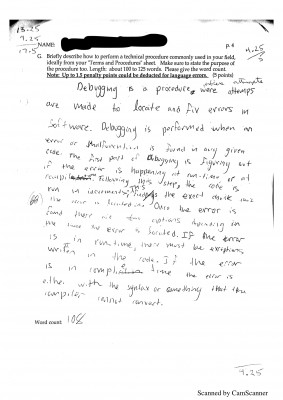 13.25
9.25
17.5
NAME:
p.4
4.25
5
G. Briefly describe how to perform a technical procedure commonly used in your field,
ideally from your "Terms and Procedures" sheet. Make sure to state the purpose of
the procedure too. Length: about 100 to 125 words. Please give the word count.
Note: Up to 1.5 penalty points could be deducted for language errors. (5 points)
where attempts
Debugging is a procedure, were attemps
are made to locate and fix errors in
software. Debugging is performed when an
error or malfunction is found in any given
code. The first part of Debugging is figuring out
if the error is happening at run-time or at
compile. Following this step, the code is
run in increments, the exact choice
the error is located in. Once the error is
found there are few options depending on
the error is located. If the error
is in runtime, there must be exceptions
written in the code. If the error
is in compile time the error is
either with the syntax or something that the
compiler cannot convert.
Word count: 108
9.25
Scanned by CamScanner